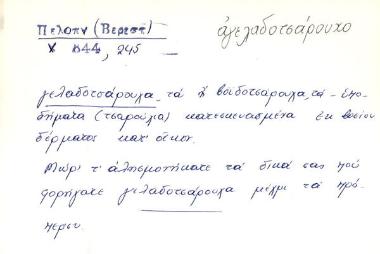 Πελοπν (Βερεστ)
χ 844, 245
ἀγελαδοτσάρουχο
γελαδοτσάρουχα, τά χ βοϊδοτσάρουχα, τά ὑπο-
δήματα (τσαρούχια) κατεσκευασμένα ἐκ βοείου
δέρματος κατ' οἶκον.
Μωρ' τ' ἀλησμονήκατε τά δικά σας πού
φορήγατε γελαδοτσάρουχα μέχρι τά πρό-
περσυ.